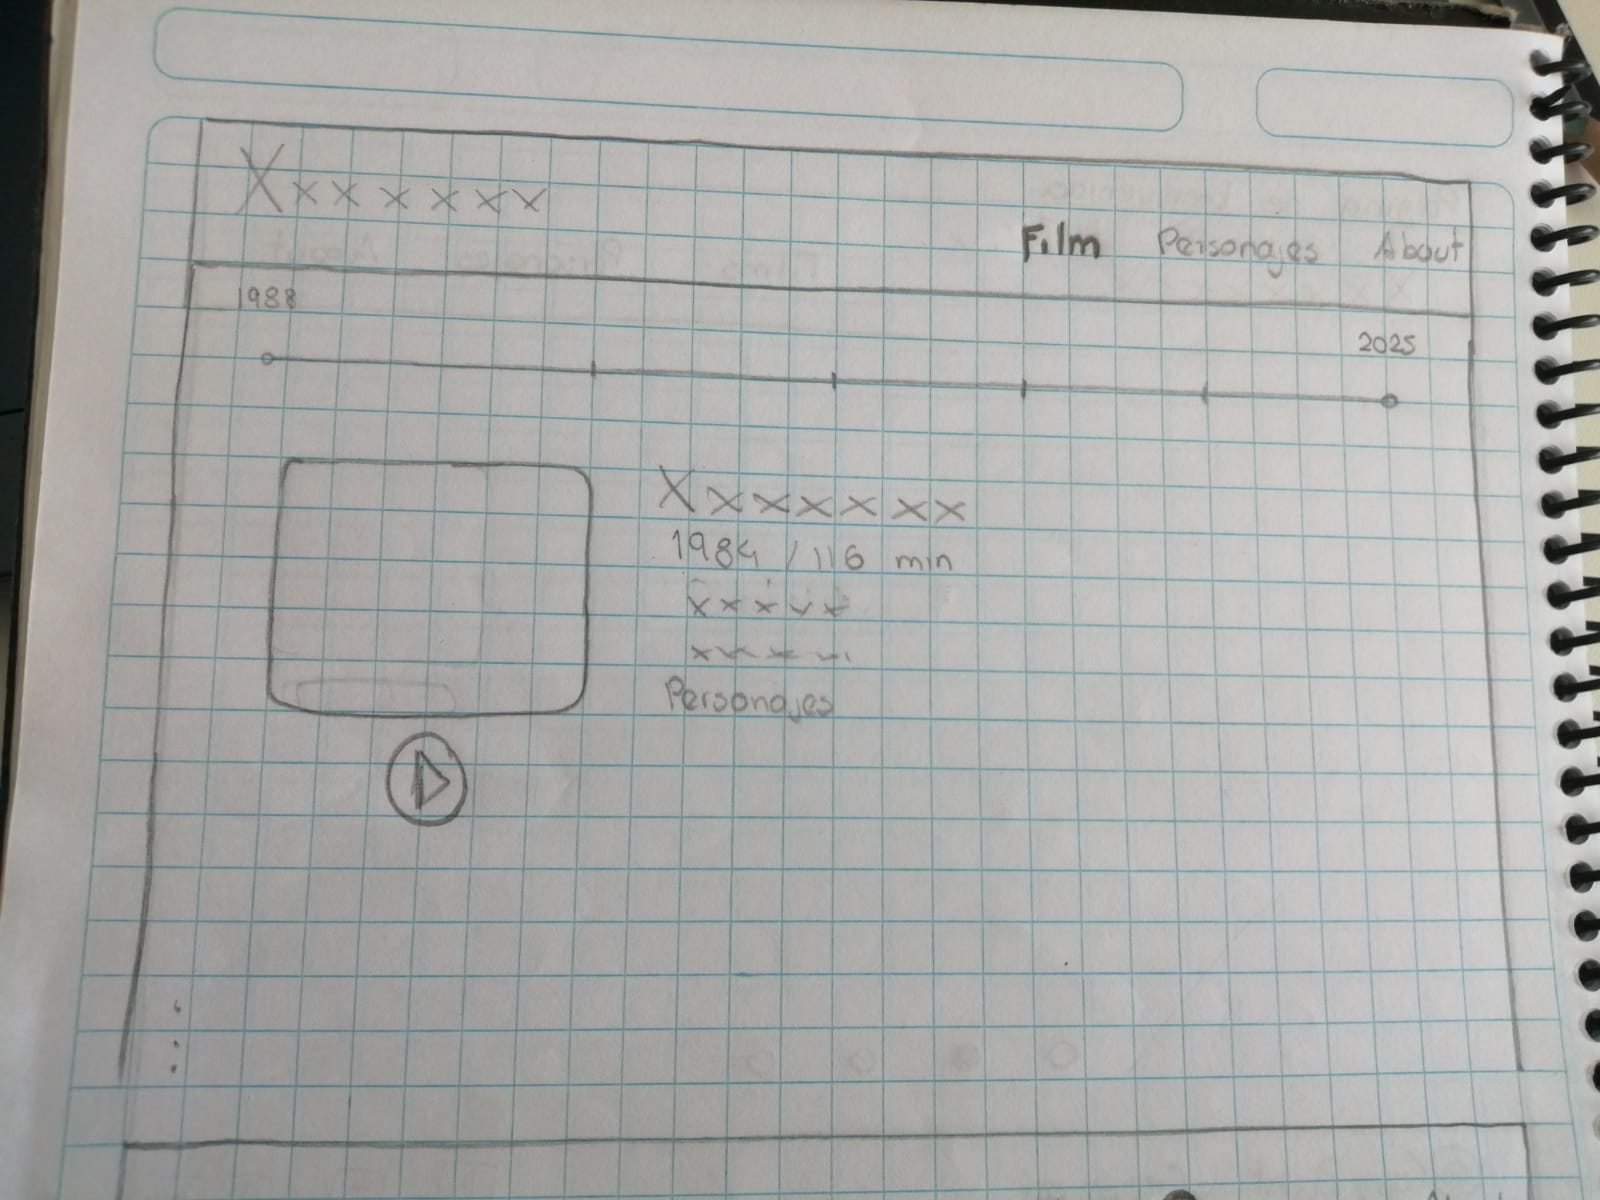 Xxxxxxx
Film Personajes About
1988
2025
Xxxxxxx
1984 / 116 min
xxxxx
xxxxx
Personajes